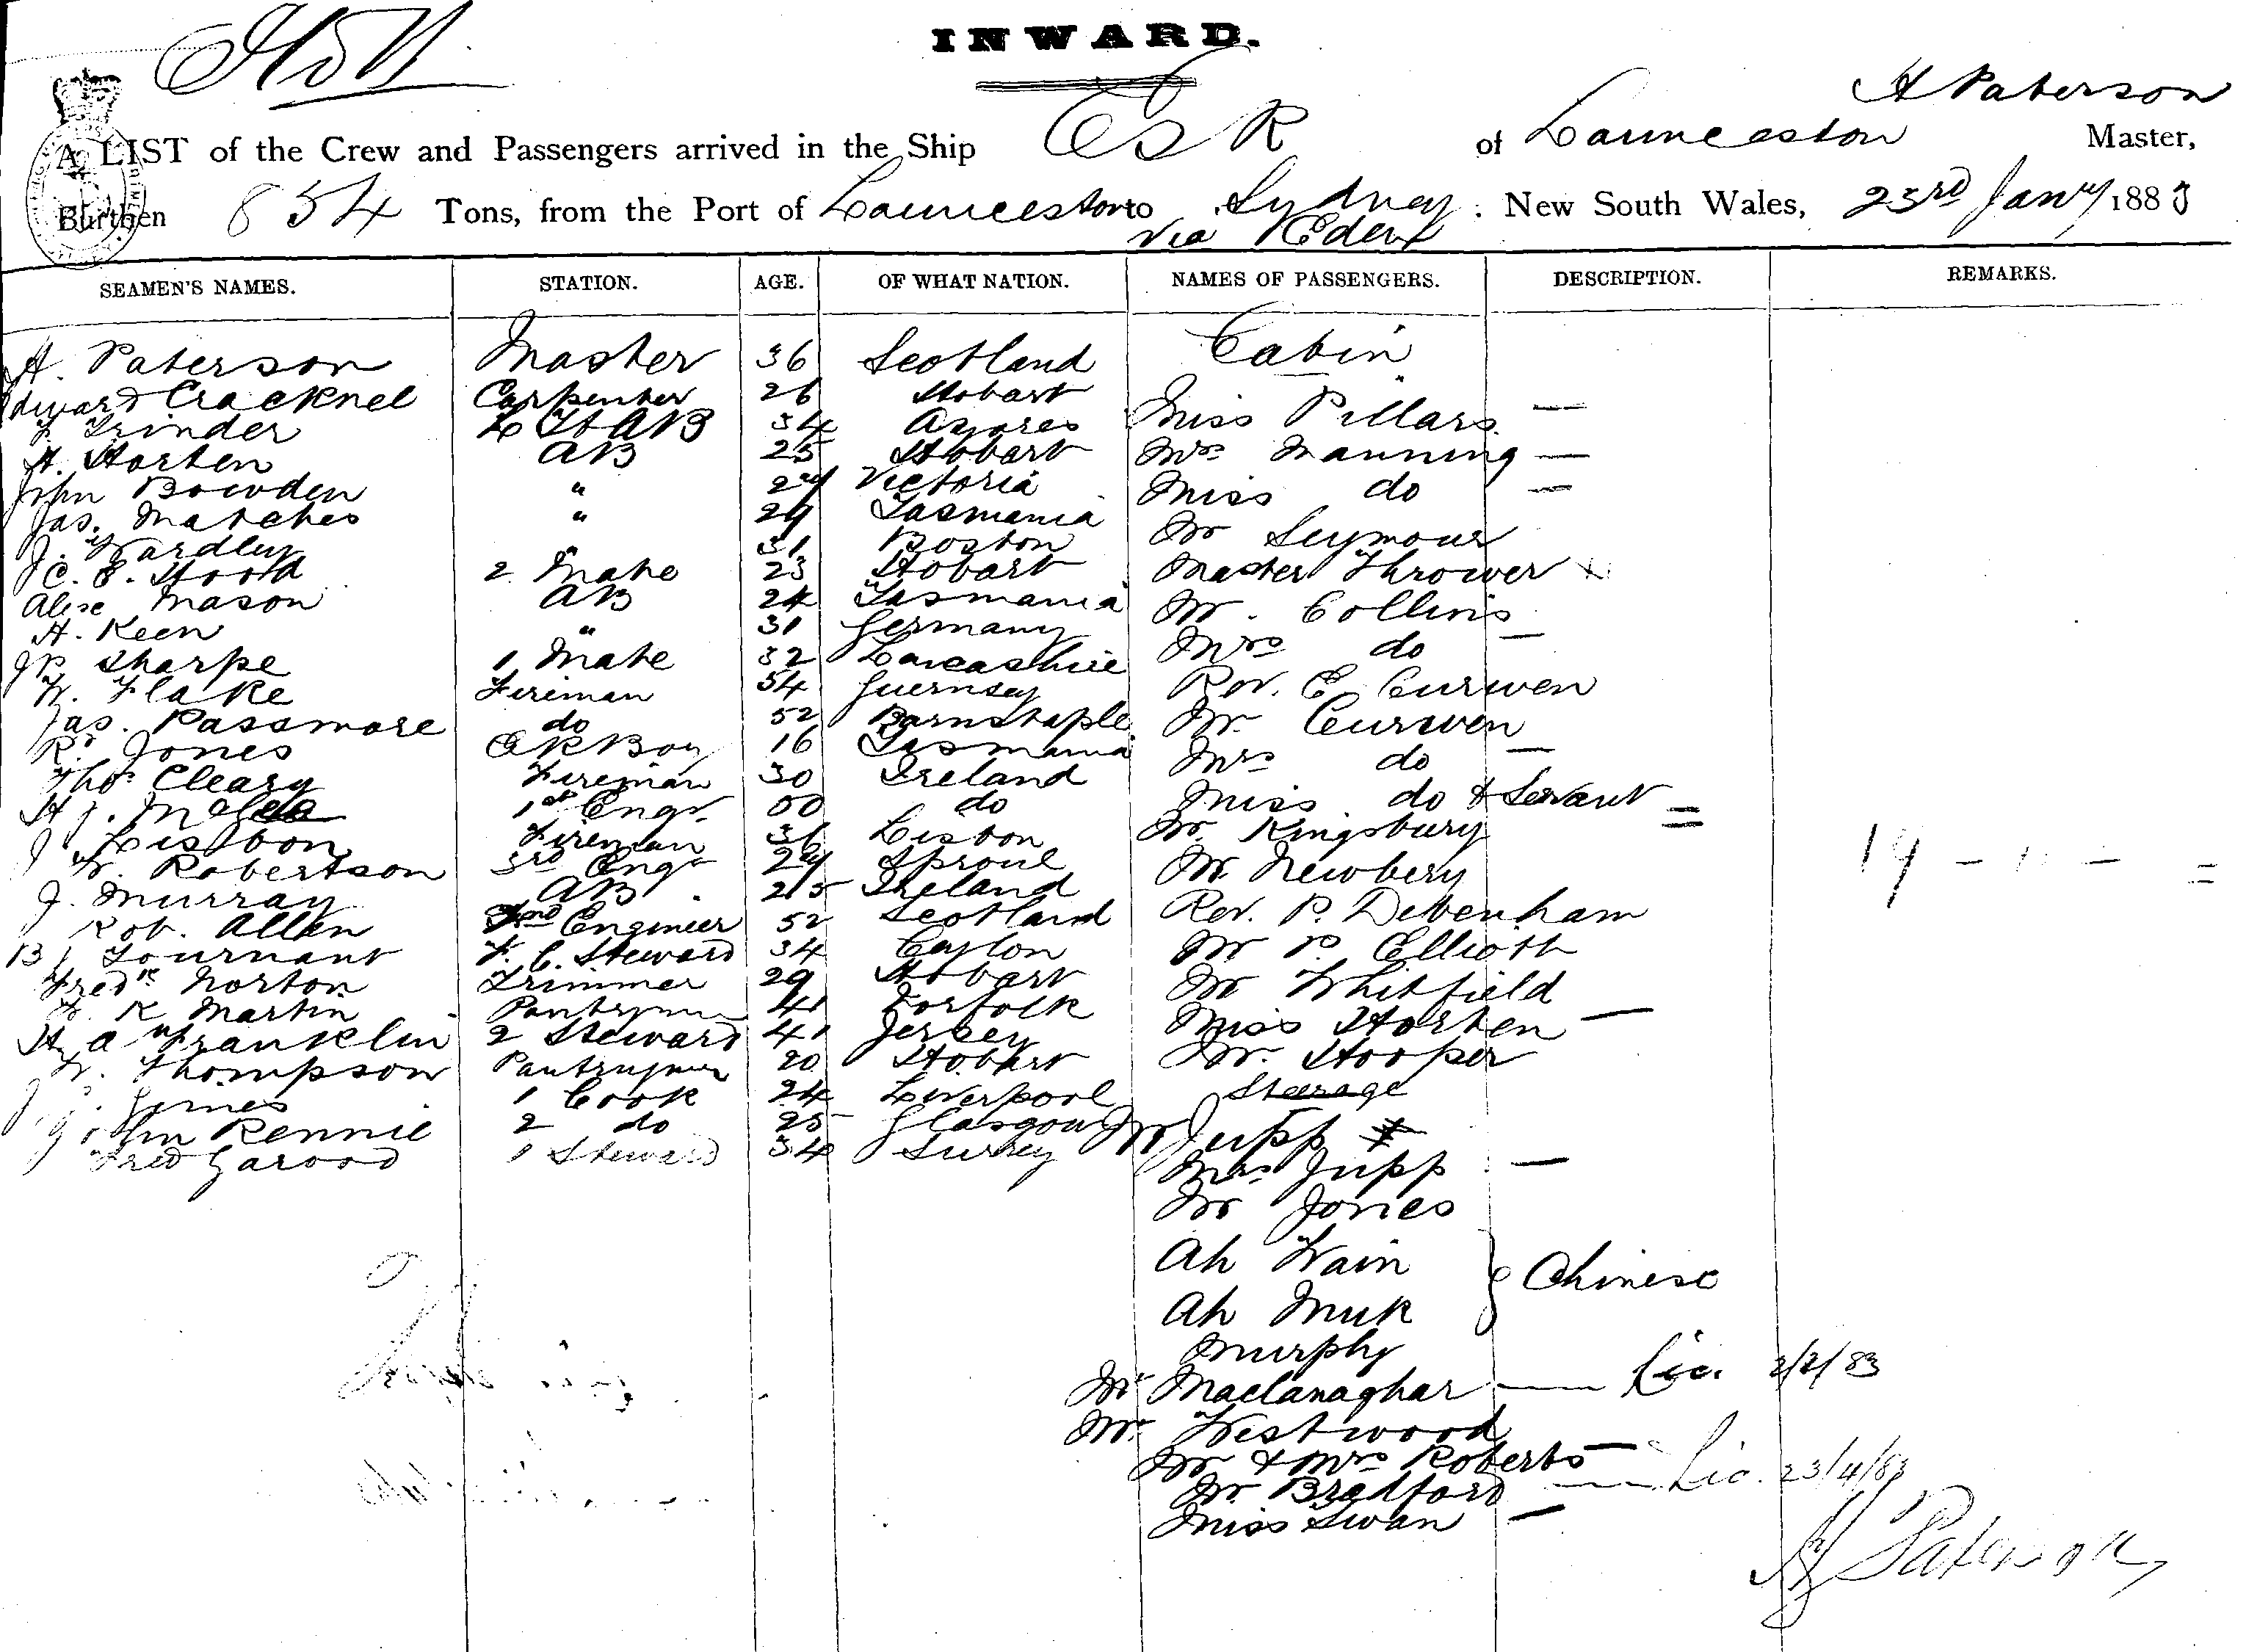 INWARD.
A Paterson
A LIST of the Crew and Passengers arrived in the Ship Esk of Launceston Master,
Burthen 854 Tons, from the Port of Launceston to Sydney : New South Wales, 23rd Jany 1883
via Eden
SEAMEN'S NAMES. STATION. AGE. OF WHAT NATION. NAMES OF PASSENGERS. DESCRIPTION. REMARKS.
A. Paterson Master 36 Scotland Cabin
Edward Cracknel Carpenter 26 Hobart
Miss Pillars —
Trinder AB 34 Azores
H. Horten AB 25 Hobart Mrs Manning —
John Bowden " Victoria Miss do —
Jas. Matches " Tasmania
J. Yardley " 31 Boston Mr Seymour
C. E. Hood 2 Mate 23 Hobart Master Thrower
Mason AB 24 Tasmania Mr. Collins
H. Keen " 31 Germany Mrs do —
JP Sharpe 1 Mate 32 Lancashire
W. Flake Fireman 54 Guernsey Rev. E Curwen
Jas. Passmore do 52 Barnstaple Mr. Curwen
R. Jones Boy 16 Tasmania Mrs do —
Thos Cleary Fireman 30 Ireland
H J. 1st Engr 50 do Miss do & Servant =
J Lisbon Fireman 36 Lisbon Mr Kingsbury
W. Robertson 3rd Engr Mr. Newbery
J. Murray AB 25 Ireland
Rob. Allen 2nd Engineer 52 Scotland Rev. P. Debenham
B J Tournant F. C. Steward 34 Ceylon Mr P. Elliott
Fredk Norton Trimmer 29 Hobart Mr Whitfield
W. K Martin Pantryman 41 Norfolk
H. A Franklin 2 Steward 41 Jersey Miss Horten —
W. Thompson Pantryman 20 Hobart Mr. Hooper
1 Cook 24 Liverpool Steerage
John Rennie 2 do 25 Glasgow Mr Jupp
Fred Garood 1 Steward 34 Surrey
Mrs Jupp —
Mr Jones
Ah Wain
Ah Muk } Chinese
Murphy
Mr Maclanaghar — Lic. 2/2/83
Mr. Westwood
Mr & Mrs Roberts —
Mr. Bradford — Lic. 23/4/83
Miss Swan —
A Paterson